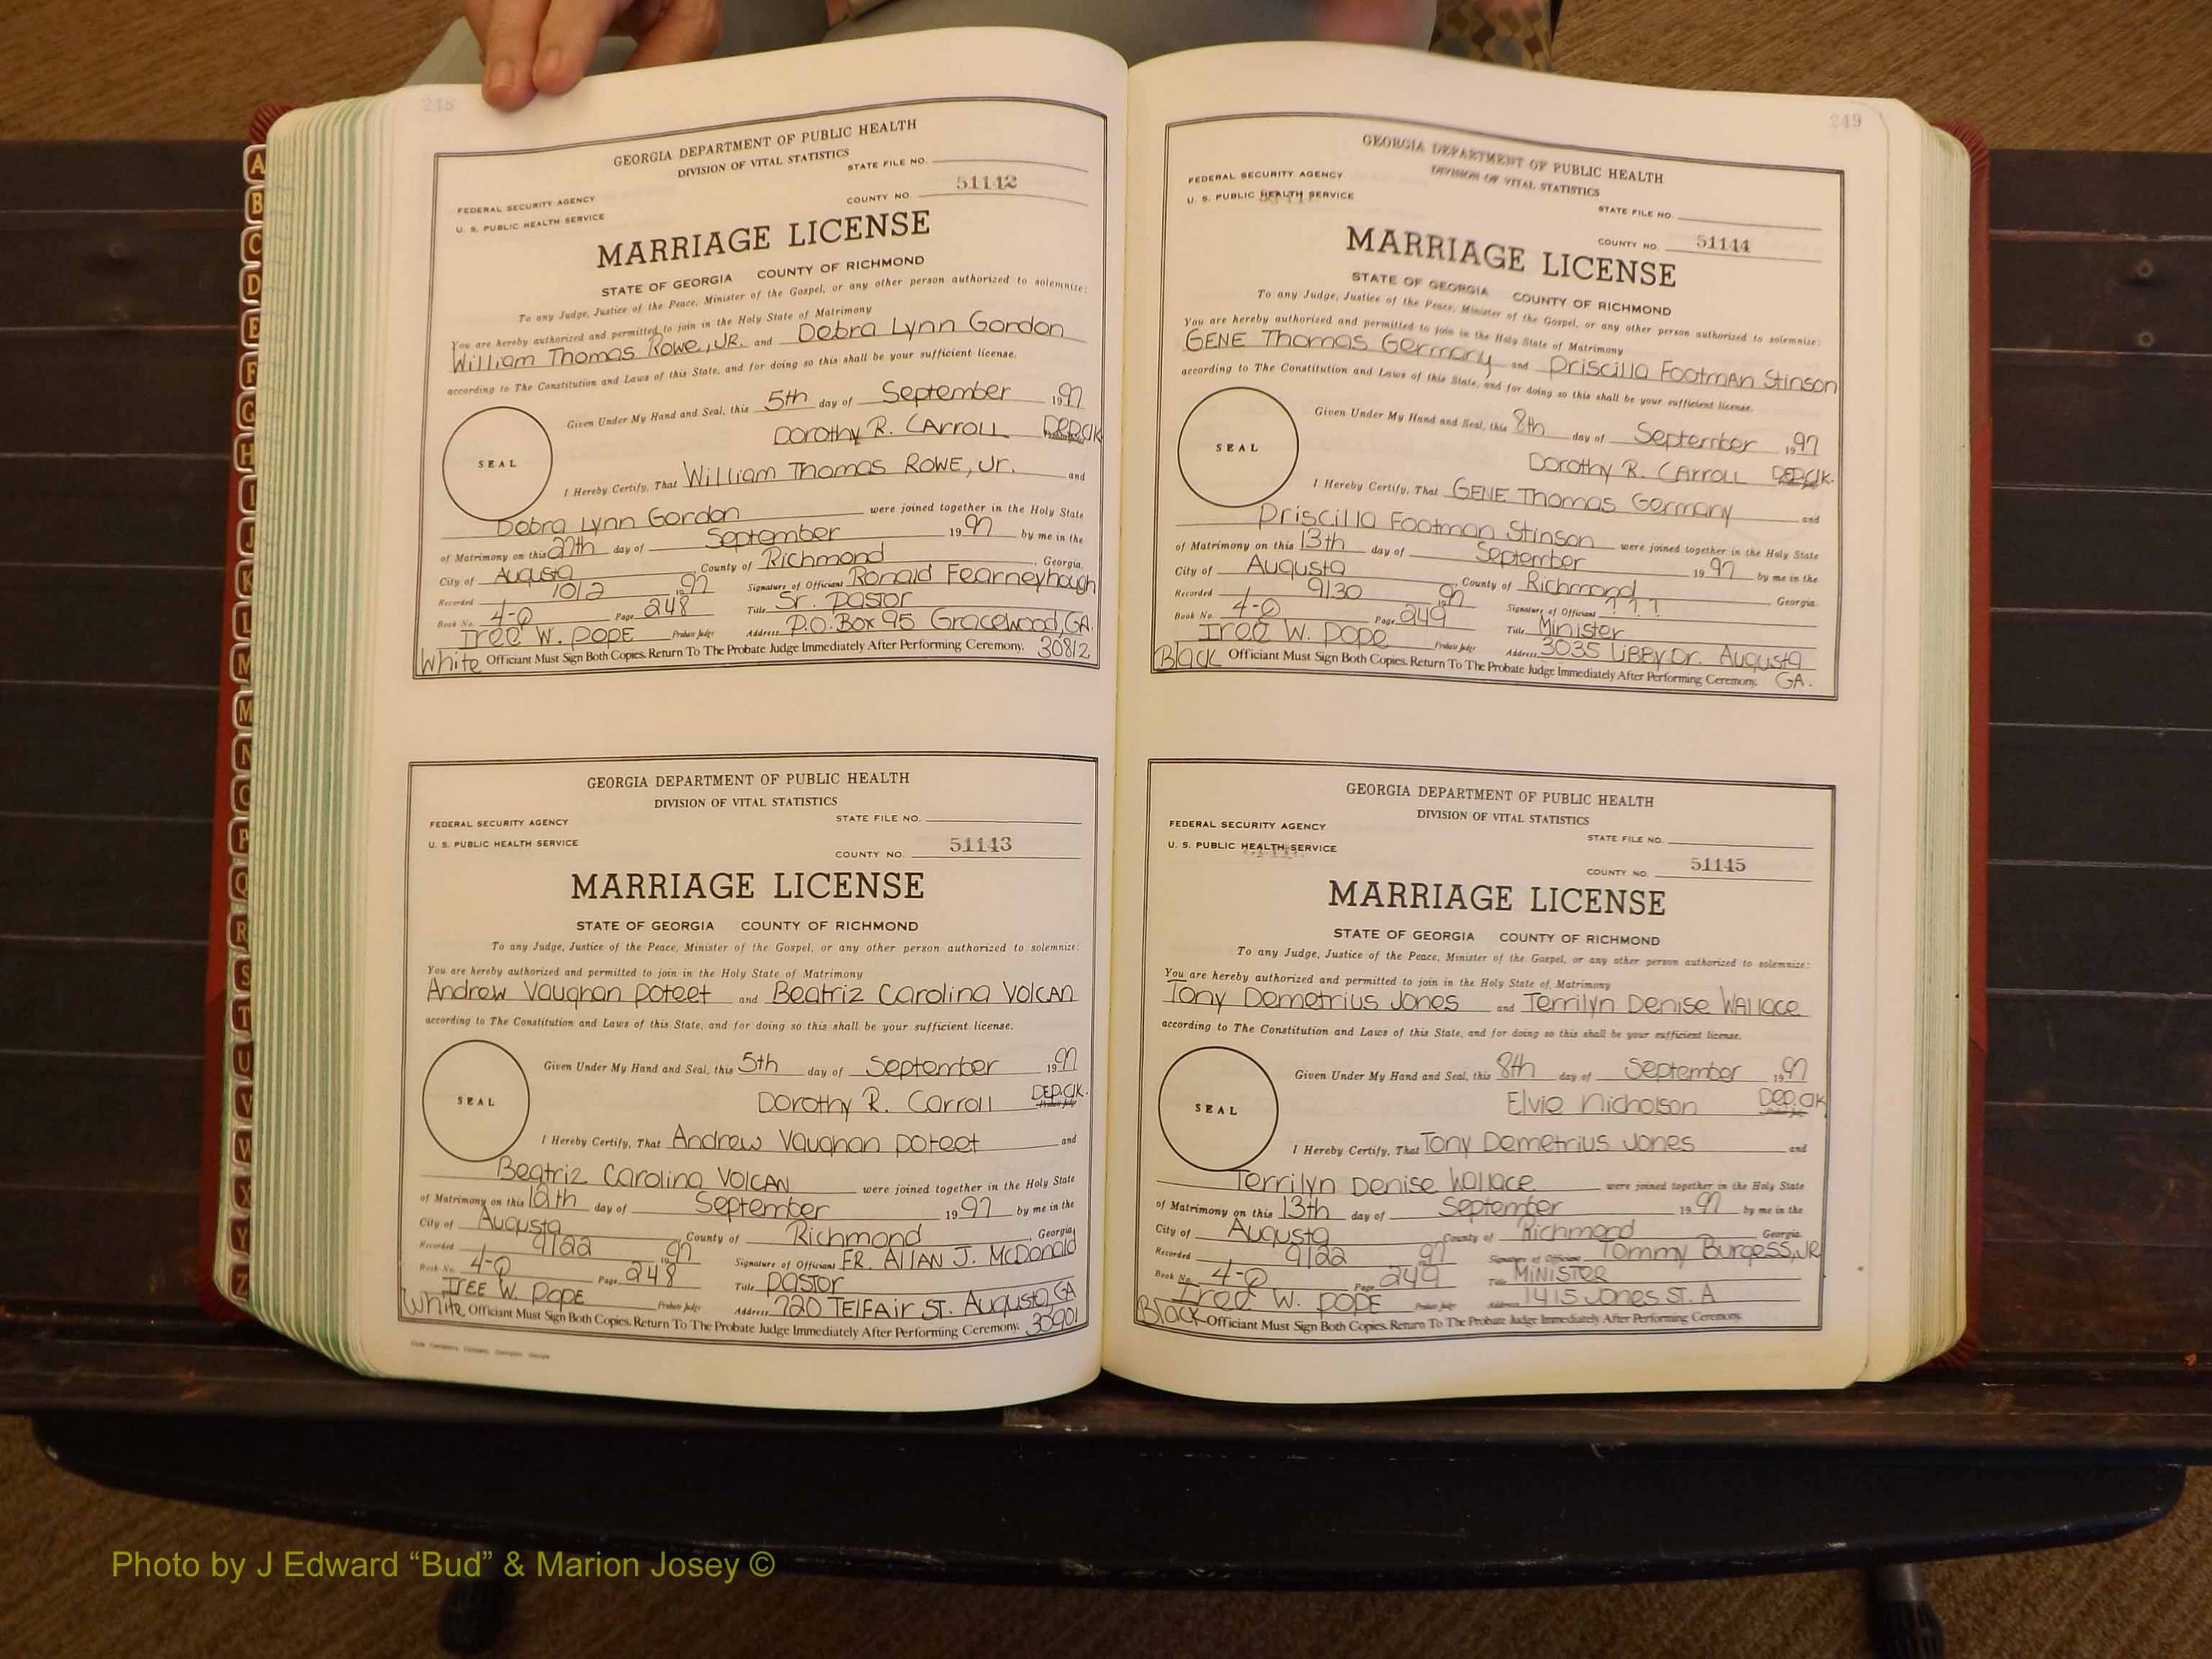 248
GEORGIA DEPARTMENT OF PUBLIC HEALTH
DIVISION OF VITAL STATISTICS
STATE FILE NO.
FEDERAL SECURITY AGENCY
U. S. PUBLIC HEALTH SERVICE
COUNTY NO. 51142
MARRIAGE LICENSE
STATE OF GEORGIA COUNTY OF RICHMOND
To any Judge, Justice of the Peace, Minister of the Gospel, or any other person authorized to solemnize:
You are hereby authorized and permitted to join in the Holy State of Matrimony
William Thomas Rowe, JR. and Debra Lynn Gordon
according to The Constitution and Laws of this State, and for doing so this shall be your sufficient license.
Given Under My Hand and Seal, this 5th day of September 1997
SEAL
Dorothy R. CArroll DEP.Clk
I Hereby Certify, That William Thomas ROWE, Jr. and
Debra Lynn Gordon were joined together in the Holy State
of Matrimony on this 27th day of September 1997 by me in the
City of Augusta County of Richmond, Georgia.
Recorded 10/2 1997 Signature of Officiant Ronald Fearneyhough
Book No. 4-Q Page 248 Title Sr. Pastor
Iree W. POPE Probate Judge Address P.O. Box 95 Gracewood, GA.
White Officiant Must Sign Both Copies. Return To The Probate Judge Immediately After Performing Ceremony. 30812
GEORGIA DEPARTMENT OF PUBLIC HEALTH
DIVISION OF VITAL STATISTICS
STATE FILE NO.
FEDERAL SECURITY AGENCY
U. S. PUBLIC HEALTH SERVICE
COUNTY NO. 51143
MARRIAGE LICENSE
STATE OF GEORGIA COUNTY OF RICHMOND
To any Judge, Justice of the Peace, Minister of the Gospel, or any other person authorized to solemnize:
You are hereby authorized and permitted to join in the Holy State of Matrimony
Andrew Vaughan Poteet and Beatriz Carolina VOlCAN
according to The Constitution and Laws of this State, and for doing so this shall be your sufficient license.
Given Under My Hand and Seal, this 5th day of September 1997
SEAL
Dorothy R. Carroll DEP.Clk.
I Hereby Certify, That Andrew Vaughan Poteet and
Beatriz Carolina VOlCAN were joined together in the Holy State
of Matrimony on this day of September 1997 by me in the
City of Augusta County of Richmond, Georgia
Recorded 9/22 1997 Signature of Officiant FR. AllAN J. McDonald
Book No. 4-Q Page 248 Title Pastor
IREE W. POPE Probate Judge Address 720 TElFAir ST. Augusta, GA
White Officiant Must Sign Both Copies. Return To The Probate Judge Immediately After Performing Ceremony. 30901
249
GEORGIA DEPARTMENT OF PUBLIC HEALTH
DIVISION OF VITAL STATISTICS
FEDERAL SECURITY AGENCY
U. S. PUBLIC HEALTH SERVICE
STATE FILE NO.
COUNTY NO. 51144
MARRIAGE LICENSE
STATE OF GEORGIA COUNTY OF RICHMOND
To any Judge, Justice of the Peace, Minister of the Gospel, or any other person authorized to solemnize:
You are hereby authorized and permitted to join in the Holy State of Matrimony
GENE Thomas Germany and Priscilla FootmAn Stinson
according to The Constitution and Laws of this State, and for doing so this shall be your sufficient license.
Given Under My Hand and Seal, this 8th day of September 1997
SEAL
Dorothy R. CArroll DEP.Clk.
I Hereby Certify, That GENE Thomas Germany and
Priscilla Footman Stinson were joined together in the Holy State
of Matrimony on this 13th day of September 1997 by me in the
City of Augusta County of Richmond, Georgia.
Recorded 9/30 1997 Signature of Officiant ? ? ?
Book No. 4-Q Page 249 Title Minister
Iree W. Pope Probate Judge Address 3035 LiBBy Dr. Augusta
Black Officiant Must Sign Both Copies. Return To The Probate Judge Immediately After Performing Ceremony. GA.
GEORGIA DEPARTMENT OF PUBLIC HEALTH
DIVISION OF VITAL STATISTICS
FEDERAL SECURITY AGENCY
U. S. PUBLIC HEALTH SERVICE
STATE FILE NO.
COUNTY NO. 51145
MARRIAGE LICENSE
STATE OF GEORGIA COUNTY OF RICHMOND
To any Judge, Justice of the Peace, Minister of the Gospel, or any other person authorized to solemnize:
You are hereby authorized and permitted to join in the Holy State of Matrimony
Tony Demetrius Jones and Terrilyn Denise WAllace
according to The Constitution and Laws of this State, and for doing so this shall be your sufficient license.
Given Under My Hand and Seal, this 8th day of September 1997
SEAL
Elvie Nicholson Dep.Clk
I Hereby Certify, That Tony Demetrius Jones and
Terrilyn Denise Wallace were joined together in the Holy State
of Matrimony on this 13th day of September 1997 by me in the
City of Augusta County of Richmond Georgia.
Recorded 9/22 1997 Signature of Officiant Tommy Burgess, JR
Book No. 4-Q Page 249 Title MINISTER
Iree W. POPE Probate Judge Address 1415 Jones St. A
Black Officiant Must Sign Both Copies. Return To The Probate Judge Immediately After Performing Ceremony.
A
B
C
D
E
F
G
H
I
J
K
L
M
M
N
O
P
Q
R
S
T
U
V
W
X
Y
Z
Photo by J Edward “Bud” & Marion Josey ©